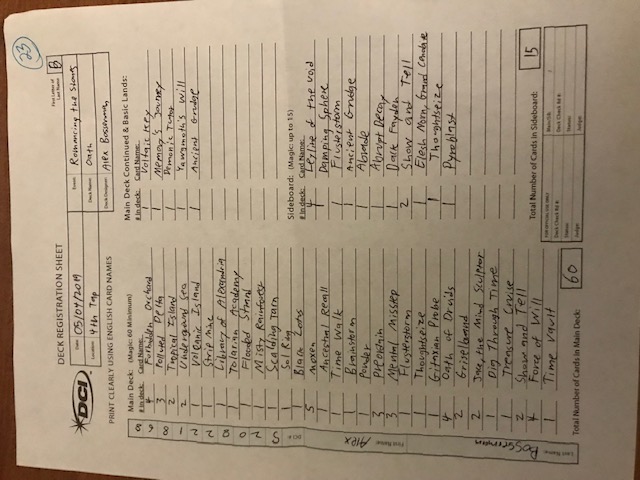 23
DECK REGISTRATION SHEET
First Letter of Last Name: B
DCI
Date: 05/04/2019
Event: Romancing the Stones
Location: 4th Tap
Deck Name: Oath
Deck Designer: Alex Bosserman
PRINT CLEARLY USING ENGLISH CARD NAMES
Main Deck: (Magic: 60 Minimum)
# in deck: Card Name:
4 Forbidden Orchard
3 Polluted Delta
2 Tropical Island
2 Underground Sea
1 Volcanic Island
1 Strip Mine
1 Library of Alexandria
1 Tolarian Academy
1 Flooded Strand
1 Misty Rainforest
1 Scalding Tarn
1 Sol Ring
1 Black Lotus
5 Moxen
1 Ancestral Recall
1 Time Walk
1 Brainstorm
1 Ponder
3 Preordain
3 Mental Misstep
1 Flusterstorm
1 Thoughtseize
1 Gitaxian Probe
4 Oath of Druids
2 Griselbrand
2 Jace, the Mind Sculptor
1 Dig Through Time
1 Treasure Cruise
2 Show and Tell
4 Force of Will
1 Time Vault
Total Number of Cards in Main Deck: 60
Main Deck Continued & Basic Lands:
# in deck: Card Name:
1 Voltaic Key
1 Memory's Journey
1 Demonic Tutor
1 Yawgmoth's Will
1 Ancient Grudge
Sideboard: (Magic: up to 15)
# in deck: Card Name:
4 Leyline of the Void
1 Damping Sphere
1 Flusterstorm
1 Ancient Grudge
1 Abrade
1 Abrupt Decay
1 Dark Fayden
2 Show and Tell
1 Elesh Norn, Grand Cenobite
1 Thoughtseize
1 Pyroblast
Total Number of Cards in Sideboard: 15
FOR OFFICIAL USE ONLY
Main/SB:
Deck Check Rd #:
Deck Check Rd #:
Status:
Status:
Judge:
Judge:
Last Name: Bosserman
First Name: Alex
DCI #: 5208221868